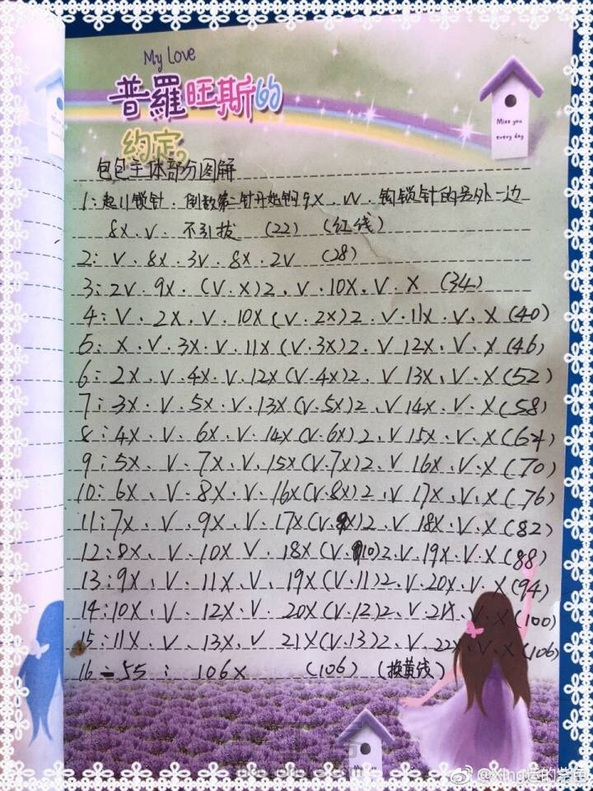 My Love
普羅旺斯的
约定。
Miss you
every day
包包主体部分图解
1:起11锁针.倒数第二针开始钩9X.W.钩锁针的另外一边
8X.V. 不引拔 (22) (红线)
2:V.8X.3V.8X.2V (28)
3:2V.9X.(V.X)2.V.10X.V.X (34)
4:V.2X.V.10X(V.2X)2.V.11X.V.X(40)
5:X.V.3X.V.11X(V.3X)2.V12X.V.X(46)
6:2X.V.4X.V.12X(V.4X)2.V13X.V.X(52)
7:3X.V.5X.V.13X(V.5X)2.V14X.V.X(58)
8:4X.V.6X.V.14X(V.6X)2.V15X.V.X(64)
9:5X.V.7X.V.15X(V.7X)2.V16X.V.X(70)
10:6X.V.8X.V.16X(V.8X)2.V17X.V.X(76)
11:7X.V.9X.V.17X(V.9X)2.V18X.V.X(82)
12:8X.V.10X.V.18X(V.10)2.V.19X.V.X(88)
13:9X.V.11X.V.19X(V.11)2.V.20X.V.X(94)
14:10X.V.12X.V.20X(V.12)2.V21X.V.X(100)
15:11X.V.13X.V 21X(V.13)2.V.22X.V.X(106)
16-55: 106X (106) (换黄线)